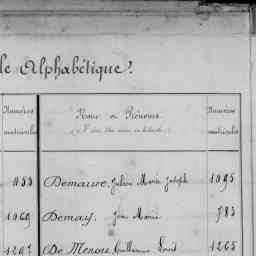 le Alphabétique.
Numéros matricules
Noms et Prénoms
Numéros matricules
455 Demaure, Julien Marie Joseph 1095
1069 Demay, Jean Marie 785
1297 De Menou, Guillaume Louis 1265